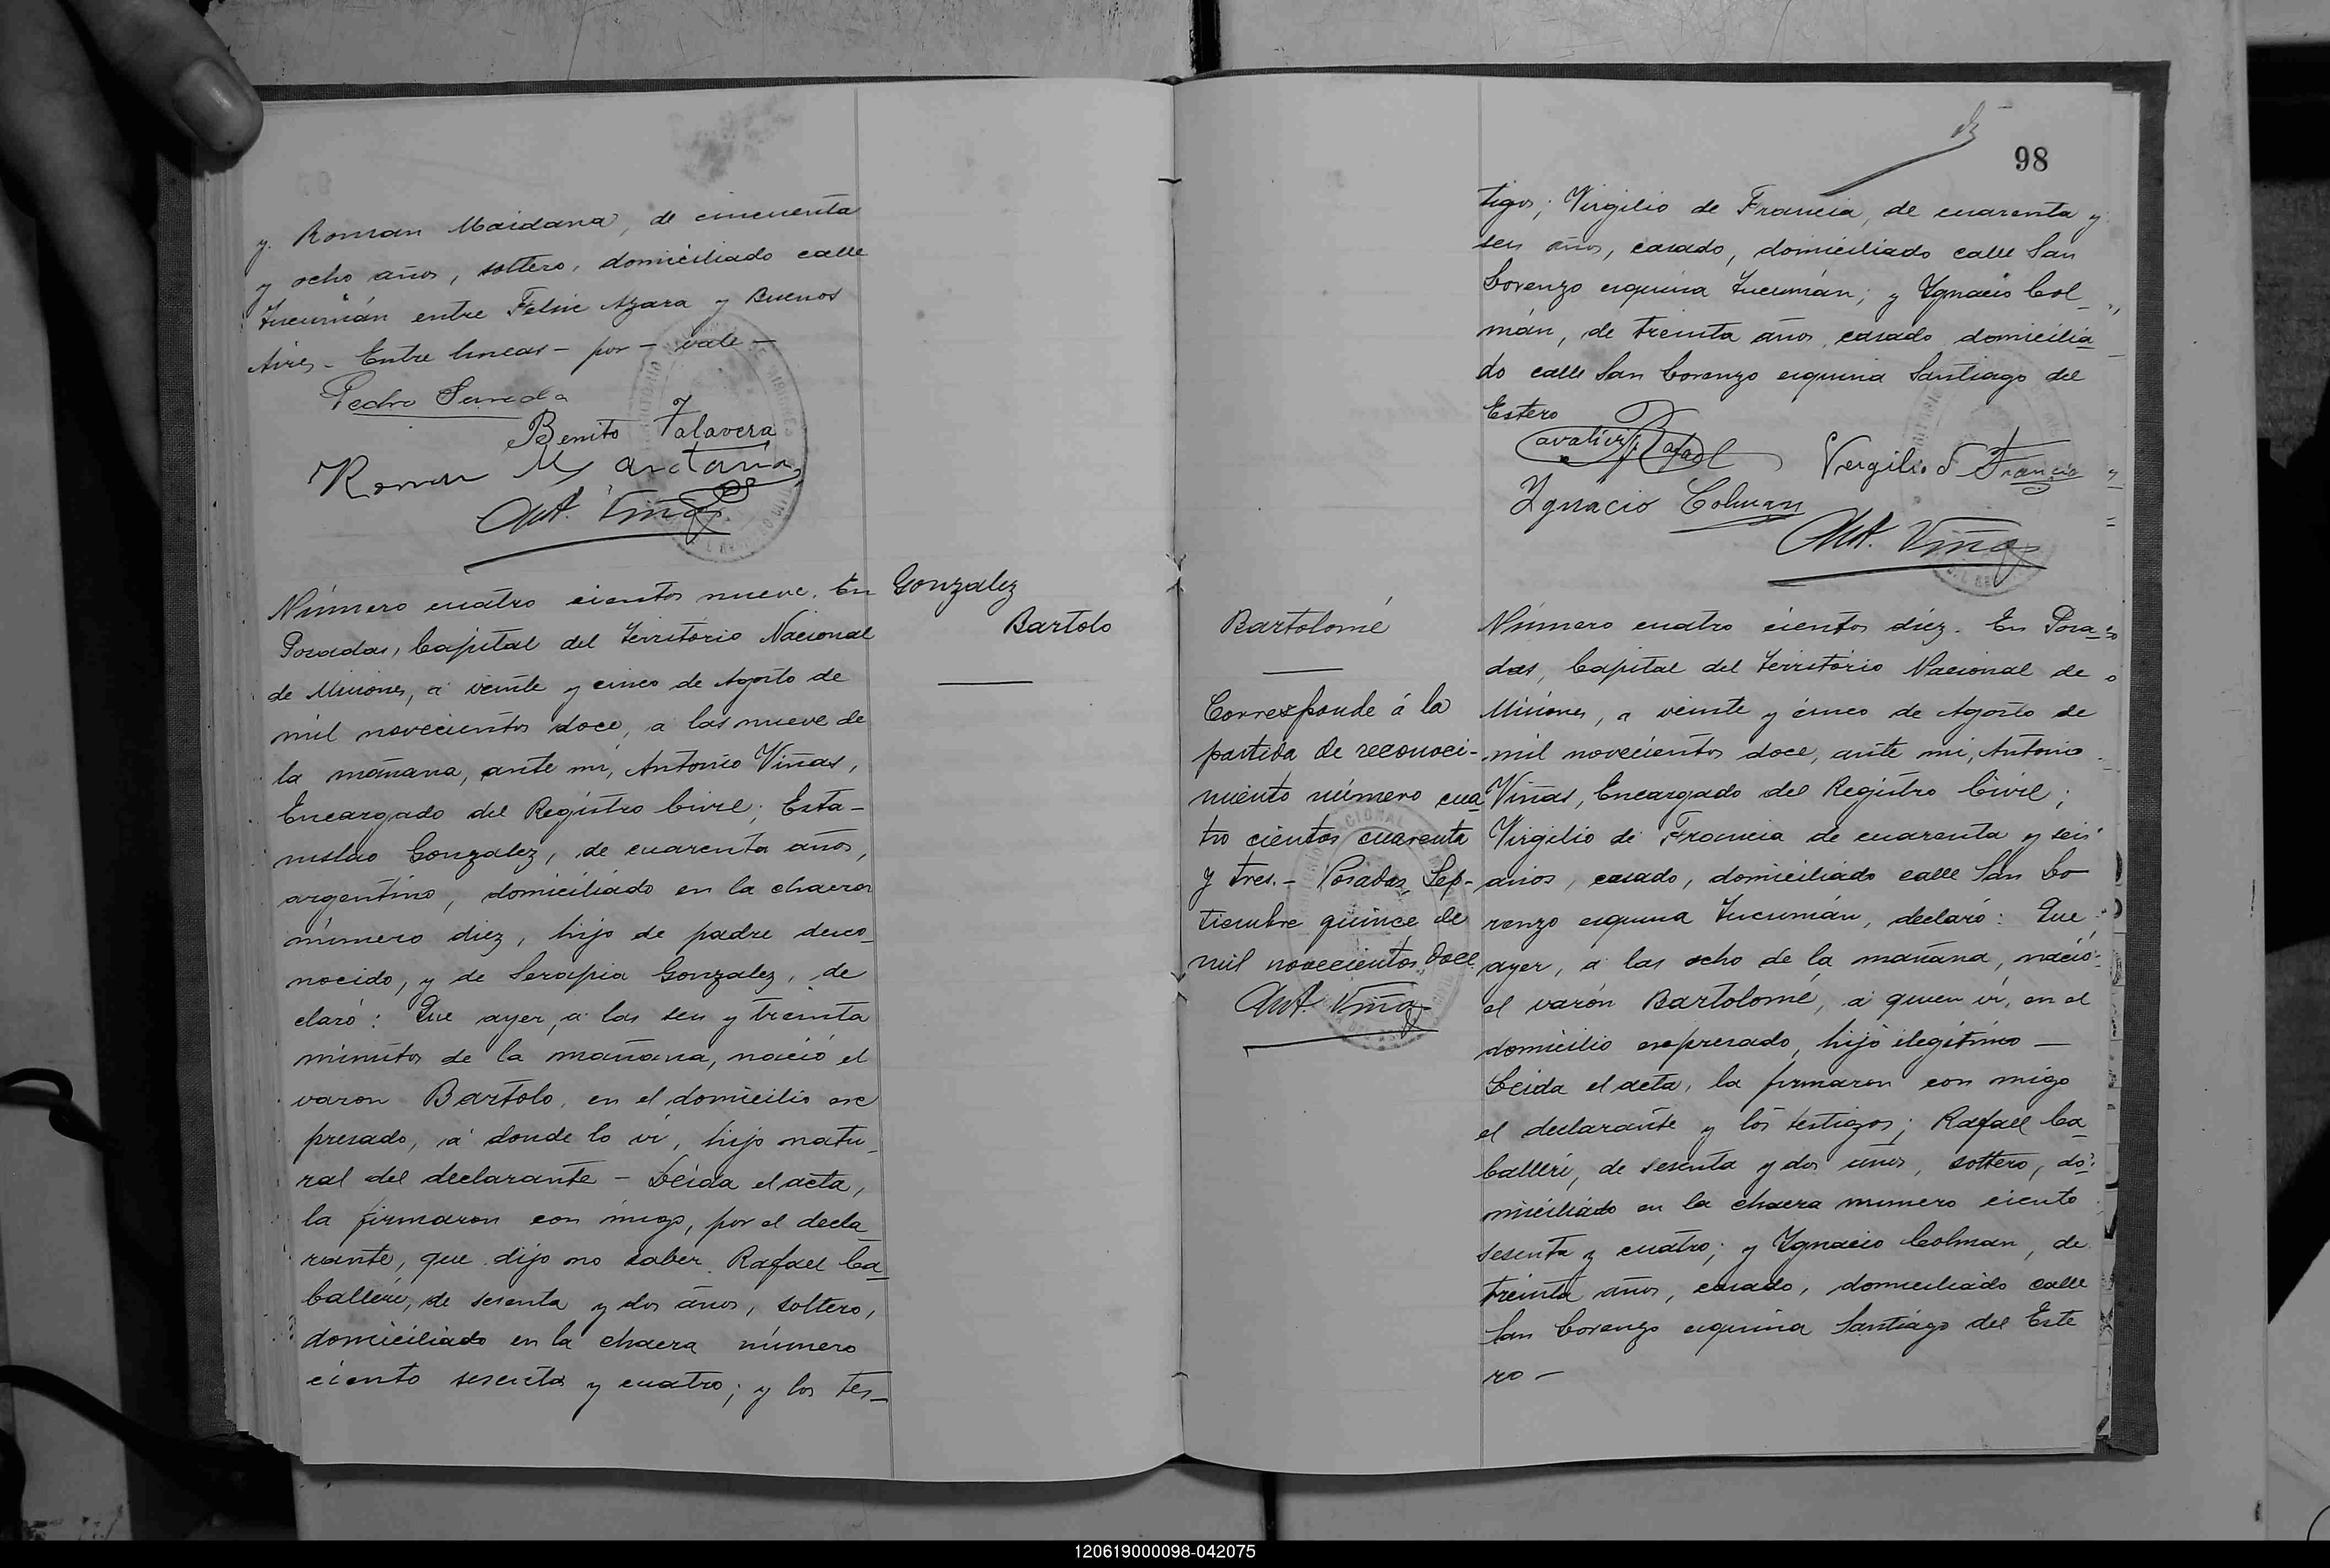 y Roman Maidana, de cincuenta
y ocho años, soltero, domiciliado calle
Tucumán entre Felix Azara y Buenos
Aires - Entre lineas - por - vale -
Pedro
Benito Talavera
Roman
Ant. Viñas
Número cuatro cientos nueve. En
Posadas, Capital del Territorio Nacional
de Misiones, a veinte y cinco de Agosto de
mil novecientos doce, a las nueve de
la mañana, ante mi, Antonio Viñas,
Encargado del Registro Civil; Esta-
nislao Gonzalez, de cuarenta años,
argentino, domiciliado en la chacra
número diez, hijo de padre desco-
nocido, y de Serapia Gonzalez, de
claró: Que ayer, a las seis y treinta
minutos de la mañana, nació el
varon Bartolo, en el domicilio ex
presado, a donde lo vi, hijo natu-
ral del declarante - Leida el acta,
la firmaron con migo, por el decla
rante, que dijo no saber, Rafael Ca
balleri, de sesenta y dos años, soltero,
domiciliado en la chacra número
ciento sesenta y cuatro; y los tes-
Gonzalez
Bartolo
98
tigos; Virgilio de Francia, de cuarenta y
seis años, casado, domiciliado calle San
Lorenzo esquina Tucumán; y Ygnacio Col-
mán, de treinta años, casado, domicilia
do calle San Lorenzo esquina Santiago del
Estero
Cavalieri Rafael
Vergilio d Francia
Ygnacio Colman
Ant. Viñas
Bartolomé
Corresponde á la
partida de reconoci-
miento número cua
tro cientos cuarenta
y tres. - Posadas, Sep-
tiembre quince de
mil novecientos doce
Ant. Viñas
Número cuatro cientos diez. En Posa-
das, Capital del Territorio Nacional de
Misiones, a veinte y cinco de Agosto de
mil novecientos doce, ante mi, Antonio
Viñas, Encargado del Registro Civil;
Virgilio de Francia de cuarenta y seis
años, casado, domiciliado calle San Lo-
renzo esquina Tucumán, declaró: Que
ayer, a las ocho de la mañana, nació
el varón Bartolomé, a quien vi, en el
domicilio expresado, hijo ilegítimo -
Leida el acta, la firmaron con migo
el declarante y los testigos; Rafael Ca
balleri, de sesenta y dos años, soltero, do-
miciliado en la chacra numero ciento
sesenta y cuatro; y Ygnacio Colman, de
treinta años, casado, domiciliado calle
San Lorenzo esquina Santiago del Este
ro -
120619000098-042075